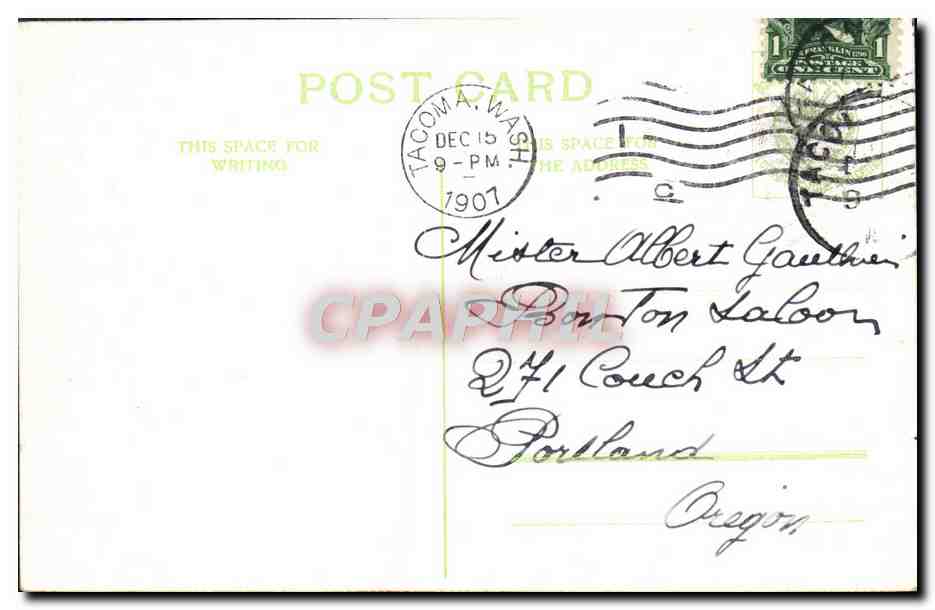 POST CARD
THIS SPACE FOR
WRITING
THIS SPACE FOR
THE ADDRESS
TACOMA, WASH.
DEC 15
9-PM
1907
1 FRANKLIN 1
POSTAGE
ONE CENT
TACO
9
C
Mister Albert Gauthier
Bon Ton Saloon
271 Couch St
Portland
Oregon
CPAPHIL